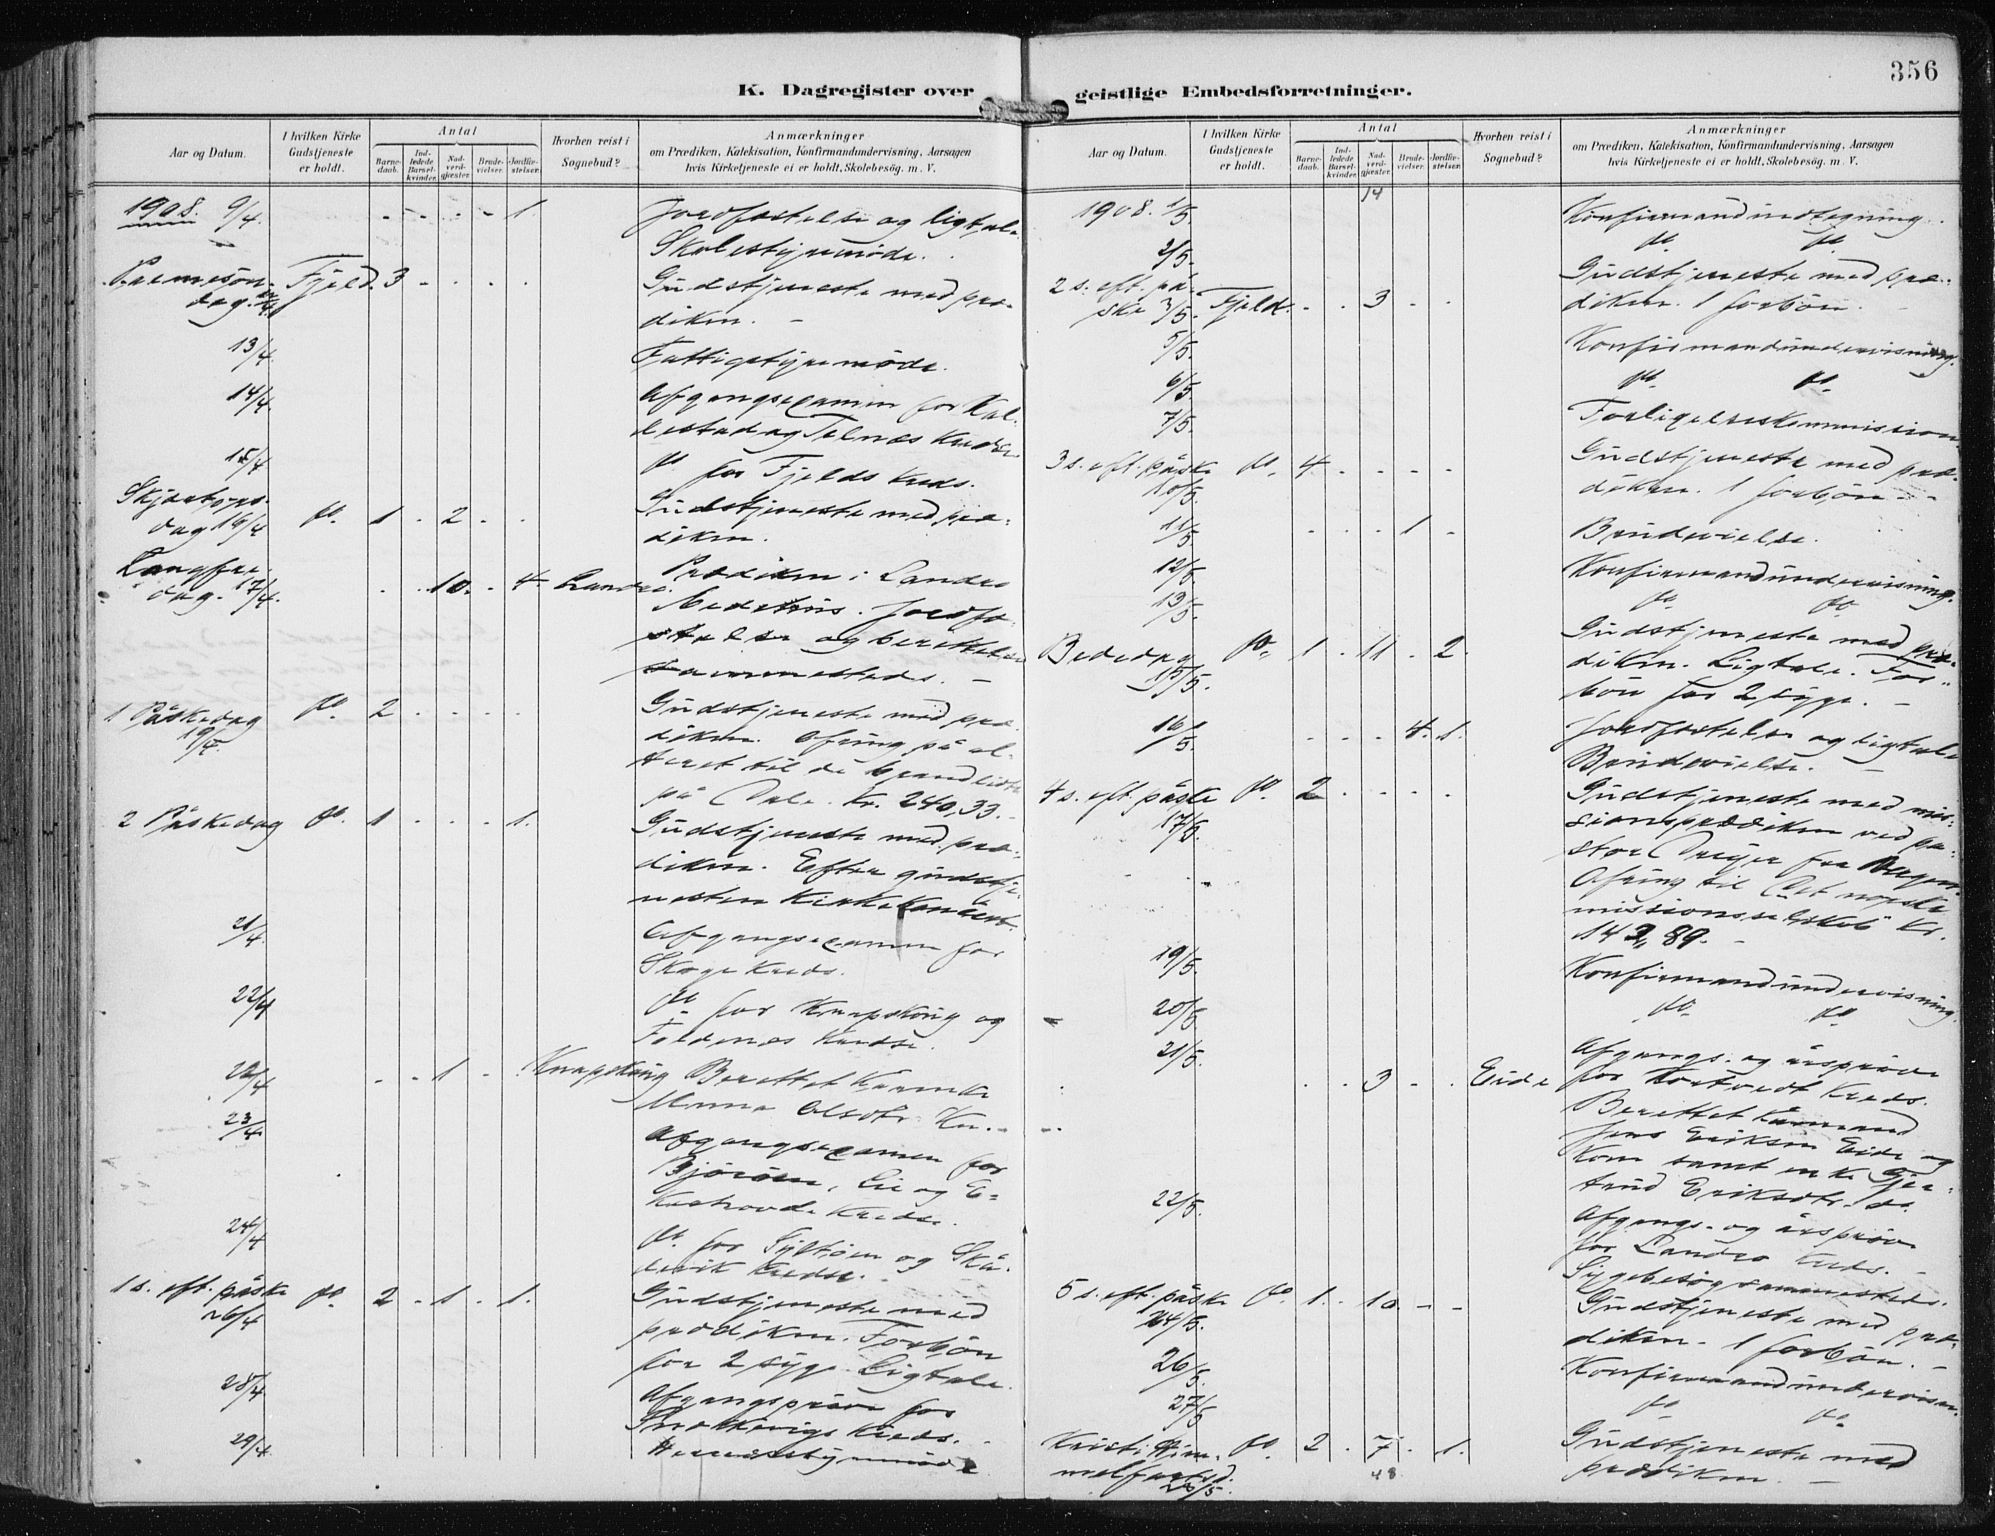 356
K. Dagregister over geistlige Embedsforretninger.
Aar og Datum.
I hvilken Kirke Gudstjeneste er holdt.
Antal
Barnedaab.
Indledede Barselkvinder.
Nadverdgjæster.
Brudevielser.
Jordfæstelser.
Hvorhen reist i Sognebud?
Anmærkninger
om Prædiken, Katekisation, Konfirmandundervisning, Aarsagen
hvis Kirketjeneste ei er holdt, Skolebesøg. m. V.
1908. 9/4 - - - - 1. Jordfæstelse og ligtale.
Skolestyremöde.
Palmesön- Fjeld. 3 - - - - Gudstjeneste med præ-
dag. 12/4 diken. -
13/4. Fattigstyremöde.
14/4. Afgangsexamen for Kal-
lestad og Telnæs kredse.
15/4 do for Fjelds kreds.
Skjærtors- do. 1 - 2 - - Gudstjeneste med præ-
dag 16/4 diken.
Langfre- Prædiken i Landro
dag. 17/4. - - 10. - 4. Landro. bedehus. Jordfæ-
stelser og berettelse
sammesteds. -
1 Påskedag do. 2 - - - - Gudstjeneste med præ-
19/4 diken. Ofring på al-
teret til de brandlidte
på Dale. Kr. 240,33. -
2 Påskedag do. 1 - - - 1. Gudstjeneste med præ-
diken. Efter gudstje-
nesten kirkekoncert.
21/4. Afgangsexamen for
Skoge kreds.
22/4 do for Knapskog og
Foldnæs kredse.
22/4 - - 1 - Knapskog Berettet kaarenke
23/4. Afgangsexamen for
Björöen, Lie og E-
kerhovde kredse.
24/4 do. for Syltöen og Skå-
levik kredse. -
1 s. eft. påske do. 2 - 1 - 1. Gudstjeneste med
26/4 prædiken. Forbön
for 2 syge. Ligtale.
28/4. Afgangspröve for
Snekkevigs kreds. -
29/4. Herredsstyremöde
Aar og Datum.
I hvilken Kirke Gudstjeneste er holdt.
Antal
Barnedaab.
Indledede Barselkvinder.
Nadverdgjæster.
Brudevielser.
Jordfæstelser.
Hvorhen reist i Sognebud?
Anmærkninger
om Prædiken, Katekisation, Konfirmandundervisning, Aarsagen
hvis Kirketjeneste ei er holdt, Skolebesøg. m. V.
14
1908. 1/5. Konfirmandindtegning.
2/5. do do
2 s. eft. på- Gudstjeneste med præ-
ske 3/5. Fjeld. - - 3 - - diken. 1 forbön. -
5/5. Konfirmandundervisning.
6/5. do do
7/5. Forligelseskommission.
3 s. eft. påske do. 4 - - - - Gudstjeneste med præ-
10/5. diken. 1 forbön -
11/5. - - - 1 - Brudevielse.
12/5. Konfirmandundervisning.
13/5. do do
Bededag do. 1 - 11 - 2. Gudstjeneste med præ-
15/5. diken. Ligtale. For-
bön for 2 syge. -
16/5. - - - 4. 1. Jordfæstelse og ligtale
Brudevielse. -
4 s. eft. påske do. 2 - - - - Gudstjeneste med mis-
17/5. sionsprædiken ved pa-
stor Dreyer fra Bergen.
Ofring til Det norske
missionsselskab Kr.
142,89. -
19/5. Konfirmandundervisning.
20/5. do do
21/5. Afgangs- og årspröve
- - 3 - - Eide for Kortvedt kreds.
Berettet kaarmand
Jens Eriksen Eide og
kone samt enke Gjer-
trud Eriksdtr. do.
22/5. Afgangs- og årspröve
for Landro kreds. -
Sygebesög sammesteds.
5 s. eft. påske do. 1 - 10 - - Gudstjeneste med præ-
24/5. diken - 1 forbön. -
26/5. Konfirmandundervisn.
27/5 do do
Kristi Him- do. 2 - 7 - 1. Gudstjeneste med
melfartsd. prædiken. -
28/5.
48